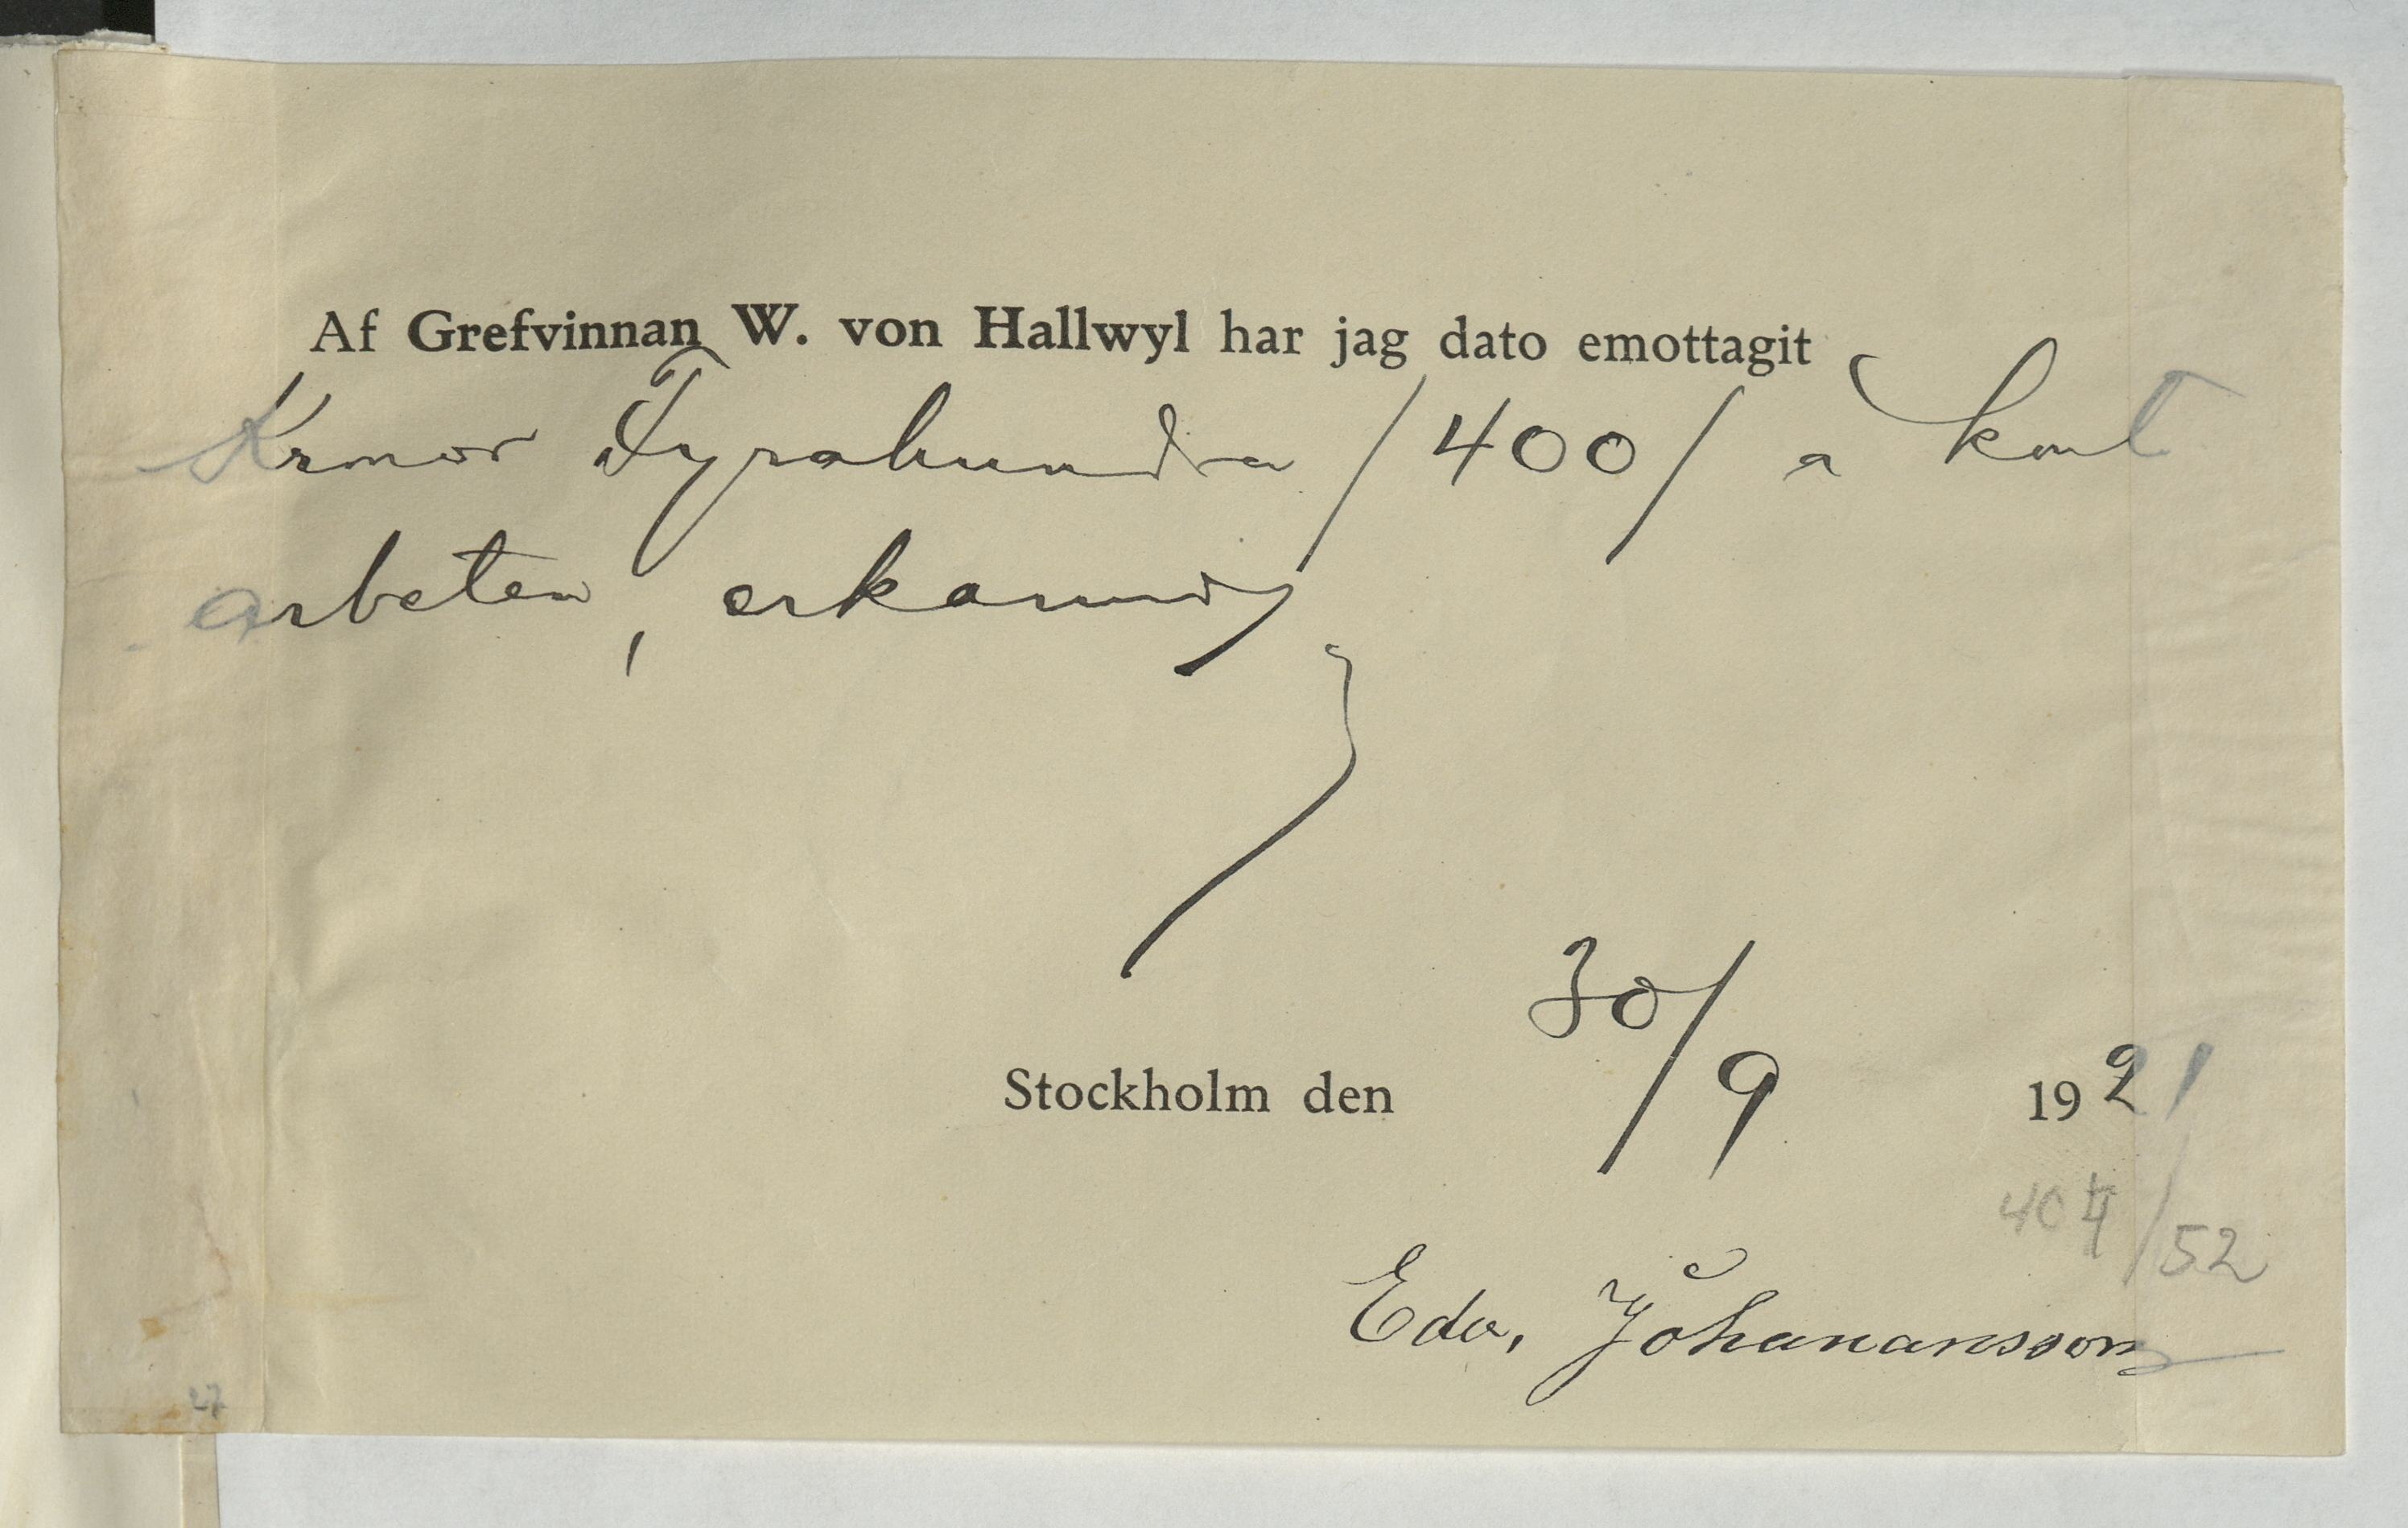 Af Grefvinnan W. von Hallwyl har jag dato emottagit
Kronor Fyrahundra /400/ a kont
arbeten, erkännes
30/9
Stockholm den 1921
404/52
Edv. Johanansson
27